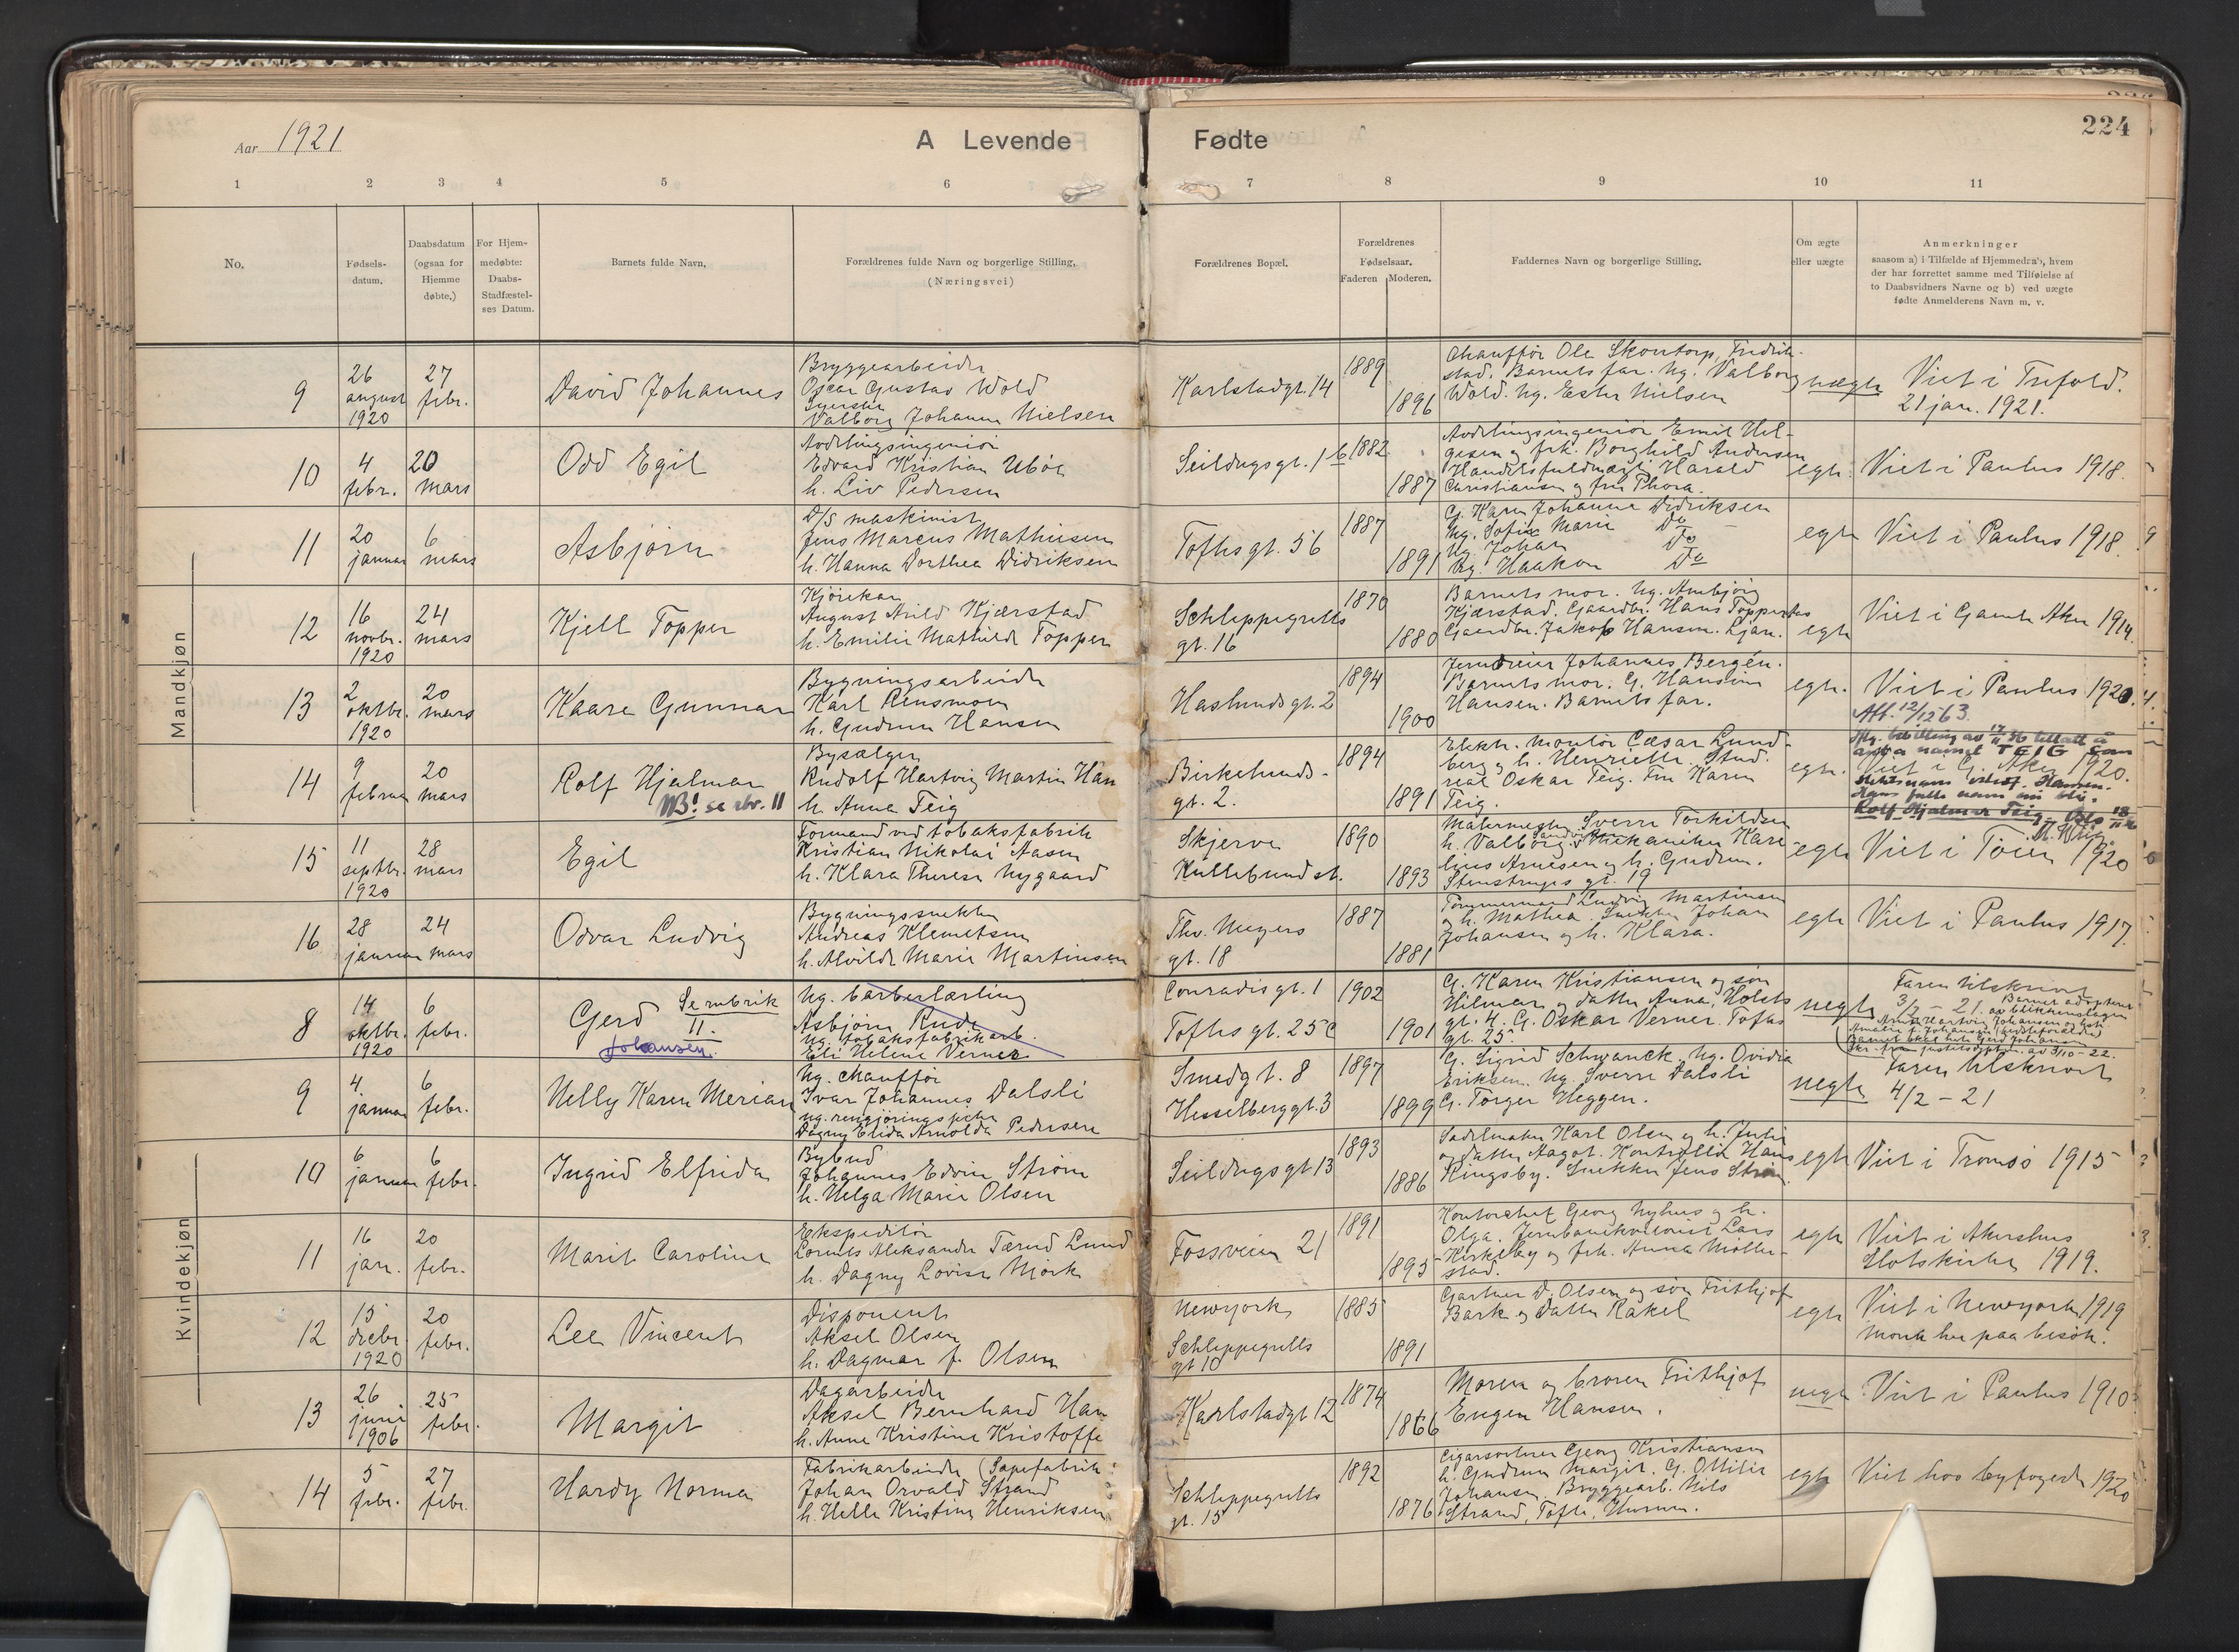 Aar 1921
A Levende Fødte
224
1 2 3 4 5 6 7 8 9 10 11
No.
Fødsels-
datum.
Daabsdatum
(ogsaa for
Hjemme
døbte.)
For Hjem-
medøbte:
Daabs-
Stadfæstel-
ses Datum.
Barnets fulde Navn.
Forældrenes fulde Navn og borgerlige Stilling.
(Næringsvei)
Forældrenes Bopæl.
Forældrenes
Fødselsaar.
Faderen Moderen.
Faddernes Navn og borgerlige Stilling.
Om ægte
eller uægte
Anmerkninger
saasom a) i Tilfælde af Hjemmedaab, hvem
der har forrettet samme med Tilføielse af
to Daabsvidners Navne og b) ved uægte
fødte Anmelderens Navn m. v.
Mandkjøn
9
26
august
1920
27
febr.
David Johannes
Bryggearbeider
Oscar Gustav Wold
Syerske
Valborg Johanne Nielsen
Karlstadgt. 14
1889
1896
Chauffør Ole Skontorp, Fredrik-
stad. Barnets far. Ug. Valborg
Wold. Ug. Ester Nielsen
uægte
Viet i Trefold.
21 jan. 1921.
10
4
febr.
20
mars
Odd Egil
Avdelingsingeniør
Edvard Kristian Ubøe
h. Liv Pedersen
Seildugsgt. 16
1882
1887
Avdelingsingeniør Emil Hel-
gesen og frk. Borghild Andersen
Handelsfuldmægt. Harald
Christiansen og fru Thora.
egte.
Viet i Paulus 1918.
11
20
januar
6
mars
Asbjørn
D/S maskinist
Jens Marcus Mathiesen
h. Hanna Dorthea Didriksen
Toftesgt. 56
1887
1891
G. Karen Johanne Didriksen
Ug. Sofie Marie Do
Ug. Johan Do
Ug. Haakon Do
egte
Viet i Paulus 1918.
12
16
novbr.
1920
24
mars
Kjell Topper
Kjørekar
August Arild Kjærstad
h. Emilie Mathilde Topper
Schleppegrells
gt. 16
1870
1880
Barnets mor. Ug. Ambjørg
Kjærstad. Gaardbr. Hans Topper
Gaardbr. Jakob Hansen. Ljan.
egte
Viet i Gamle Aker 1914.
13
2
oktbr.
1920
20
mars
Kaare Gunnar
Bygningsarbeider
Karl Rensmoen
h. Gudrun Hansen
Haslundsgt. 2
1894
1900
Jerndreier Johannes Bergén.
Barnets mor. G. Hansine
Hansen. Barnets far.
egte.
Viet i Paulus 1920.
Att. 12/12 63.
14
9
februar
20
mars
Rolf Hjalmar
NB! se rbr. 11
Bysælger
Rudolf Hartvig Martin Han
h. Anna Teig
Birkelunds-
gt. 2.
1894
1891
Elektr. montør Cæsar Lund-
berg og h. Henriette. Stud.
real Oskar Teig. Fru Karen
Teig.
egte.
Iflg. bevilling av 17/11 36 tillatt å
anta navnet TEIG som
Viet i G. Aker 1920.
slektsnavn istedf. Hansen.
Hans fulle navn nu bli.
Rolf Hjalmar Teig – Oslo 18/11 36
15
11
septbr.
1920
28
mars
Egil
Formand ved tobaksfabrik
Kristian Nikolai Aasen
h. Klara Therese Nygaard
Skjerve
Kullebundst.
1890
1893
Malermester Sverre Torkildsen
h. Valborg. Mekaniker Kare-
lius Arnesen og h. Gudrun.
Stenstrups gt. 19
egte
Viet i Tøien 1920
16
28
januar
24
mars
Odvar Ludvig
Bygningssnekker
Andreas Klemetsen
h. Alvilde Marie Martinsen
Thv. Meyers
gt. 18
1887
1881
Tømmermand Ludvig Martinsen
og h. Mathea. Snekker Johan
Johansen og h. Klara.
egte
Viet i Paulus 1917.
Kvindekjøn
8
14
oktbr.
1920
6
febr.
Gerd Se rubrik
11.
Johansen.
Ug. barberlærling
Asbjørn Rude
ug. tobaksfabrikarb.
Eli Helene Verner
Conradisgt. 1
Toftesgt. 25c
1902
1901
G. Karen Kristiansen og søn
Hilmar og datter Anna, Holsts
gt. 4. G. Oskar Verner. Toftes
gt. 25.
uegte
Faren tilskrevet
3/2 – 21.
Barnet adopteret
av blikkenslager
Arnt Hartvig Johansen og h.
Amalie f. Johansen
Barnet skal hete Gerd Johansen
Skr. fra justitsdept. av 3/10–22.
9
4
januar
6
febr.
Nelly Karen Merian
Ug. chauffør
Ivar Johannes Dalsli
ug. rengjøringspike
Dagny Elida Arnolda Pedersen
Smedgt. 8
Hesselberggt. 3
1897
1899
G. Sigrid Schwanck. Ug. Ovidia
Eriksen. Ug. Sverre Dalsli
G. Torger Heggen.
uegte
Faren tilskrevet
4/2 – 21
10
6
januar
6
febr.
Ingrid Elfrida
Bybud
Johannes Edvin Strøm
h. Helga Marie Olsen
Seildugsgt 13
1893
1886
Sadelmaker Karl Olsen og h. Julie
og datter Aagot. Kontrollør Hans
Ringsby. Snekker Jens Strøm.
egte
Viet i Tromsø 1915
11
16
jan.
20
febr.
Marit Caroline
Ekspeditør
Lornts Aleksander Tærud Lund
h. Dagny Lovise Mørk
Fossveien 21
1891
1895
Kontorchef Georg Nyhus og h.
Olga. Jernbanekontorist Lars
Kirkeby og frk. Anna Møller-
stad.
egte
Viet i Akershus
Slotskirke 1919.
12
15
decbr.
1920
20
febr.
Lee Vincent
Disponent
Aksel Olsen
h. Dagmar f. Olsen
Newyork
Schleppegrells
gt 10
1885
1891
Gartner D. Olsen og søn Frithjof
Bark og datter Rakel
egte
Viet i Newyork 1919
Moren her paa besøk.
13
26
juni
1906
25
febr.
Margit
Dagarbeider
Aksel Bernhard Han
h. Anne Kristine Kristoffe
Karlstadgt 12
1874
1866
Moren og broren Frithjof
Eugen Hansen.
uegte
Viet i Paulus 1910
14
5
febr.
27
febr.
Hardy Norma
Fabrikarbeider (Sæpefabrik
Johan Orvald Strand
h. Helle Kristine Henriksen
Schleppegrells
gt. 15
1892
1876
Cigarsorterer Georg Kristiansen
h. Gudrun Margit. G. Ottilie
Johansen. Bryggearb. Nils
Strand, Tofte, Hurum.
egte
Viet hos byfogden 1920